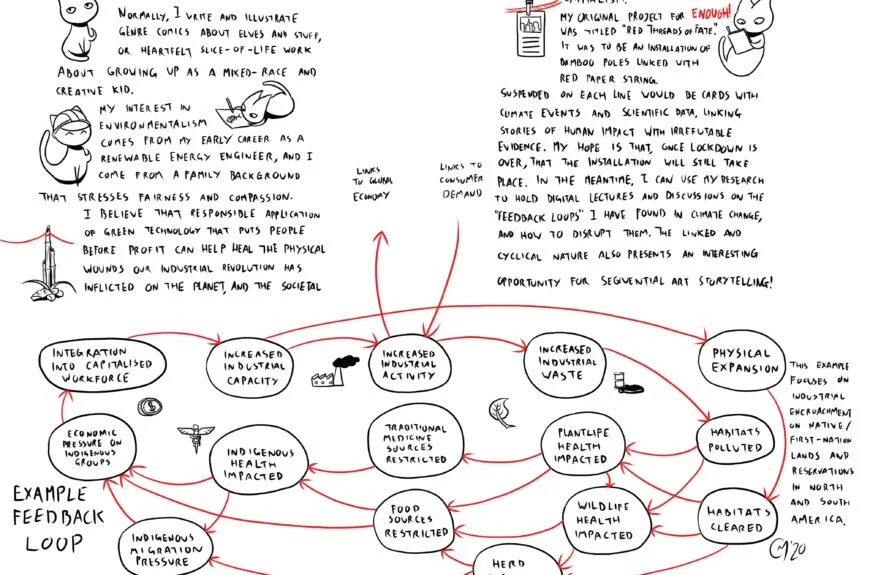 NORMALLY, I WRITE AND ILLUSTRATE
GENRE COMICS ABOUT ELVES AND STUFF,
OR HEARTFELT SLICE-OF-LIFE WORK
ABOUT GROWING UP AS A MIXED-RACE AND
CREATIVE KID.
MY INTEREST IN
ENVIRONMENTALISM
COMES FROM MY EARLY CAREER AS A
RENEWABLE ENERGY ENGINEER, AND I
COME FROM A FAMILY BACKGROUND
THAT STRESSES FAIRNESS AND COMPASSION.
I BELIEVE THAT RESPONSIBLE APPLICATION
OF GREEN TECHNOLOGY THAT PUTS PEOPLE
BEFORE PROFIT CAN HELP HEAL THE PHYSICAL
WOUNDS OUR INDUSTRIAL REVOLUTION HAS
INFLICTED ON THE PLANET, AND THE SOCIETAL
MY ORIGINAL PROJECT FOR ENOUGH!
WAS TITLED "RED THREADS OF FATE."
IT WAS TO BE AN INSTALLATION OF
BAMBOO POLES LINKED WITH
RED PAPER STRING.
SUSPENDED ON EACH LINE WOULD BE CARDS WITH
CLIMATE EVENTS AND SCIENTIFIC DATA, LINKING
STORIES OF HUMAN IMPACT WITH IRREFUTABLE
EVIDENCE. MY HOPE IS THAT, ONCE LOCKDOWN IS
OVER, THAT THE INSTALLATION WILL STILL TAKE
PLACE. IN THE MEANTIME, I CAN USE MY RESEARCH
TO HOLD DIGITAL LECTURES AND DISCUSSIONS ON THE
"FEEDBACK LOOPS" I HAVE FOUND IN CLIMATE CHANGE,
AND HOW TO DISRUPT THEM. THE LINKED AND
CYCLICAL NATURE ALSO PRESENTS AN INTERESTING
OPPORTUNITY FOR SEQUENTIAL ART STORYTELLING!
LINKS
TO GLOBAL
ECONOMY
LINKS TO
CONSUMER
DEMAND
INTEGRATION
INTO CAPITALISED
WORKFORCE
INCREASED
INDUSTRIAL
CAPACITY
INCREASED
INDUSTRIAL
ACTIVITY
INCREASED
INDUSTRIAL
WASTE
PHYSICAL
EXPANSION
ECONOMIC
PRESSURE ON
INDIGENOUS
GROUPS
INDIGENOUS
HEALTH
IMPACTED
TRADITIONAL
MEDICINE
SOURCES
RESTRICTED
PLANTLIFE
HEALTH
IMPACTED
HABITATS
POLLUTED
INDIGENOUS
MIGRATION
PRESSURE
FOOD
SOURCES
RESTRICTED
WILDLIFE
HEALTH
IMPACTED
HABITATS
CLEARED
HERD
EXAMPLE
FEEDBACK
LOOP
THIS EXAMPLE
FOCUSES ON
INDUSTRIAL
ENCROACHMENT
ON NATIVE/
FIRST-NATION
LANDS AND
RESERVATIONS
IN NORTH
AND SOUTH
AMERICA.
'20